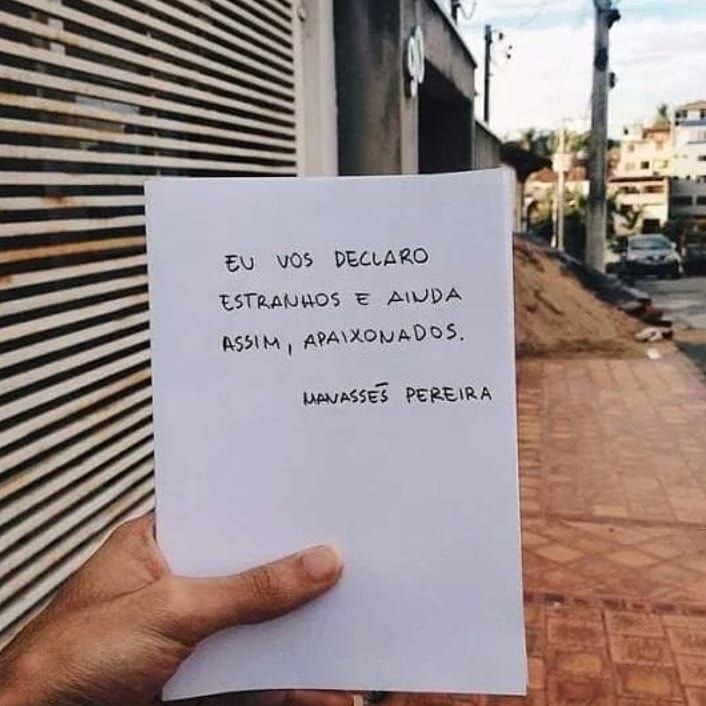 90
EU VOS DECLARO
ESTRANHOS E AINDA
ASSIM, APAIXONADOS.
MANASSÉS PEREIRA